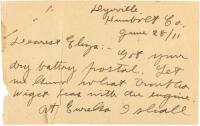 Dyerville
Humbolt Co.
June 28/11
Dearest Eliza:- Got your
dry battery postal. Let
me know what trouble
Wiget has with the engine.
At Eureka I shall